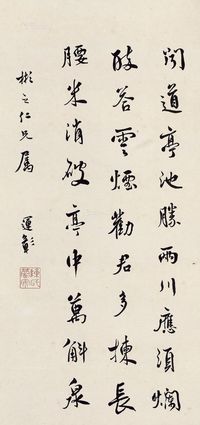 聞道亭池勝兩川應須爛
醉荅雲煙勸君多揀長
腰米消破亭中萬斛泉
彬之仁兄屬
運彰